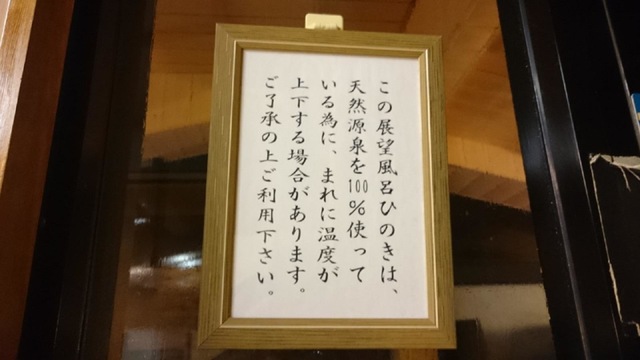 この展望風呂ひのきは、
天然源泉を100%使って
いる為に、まれに温度が
上下する場合があります。
ご了承の上ご利用下さい。